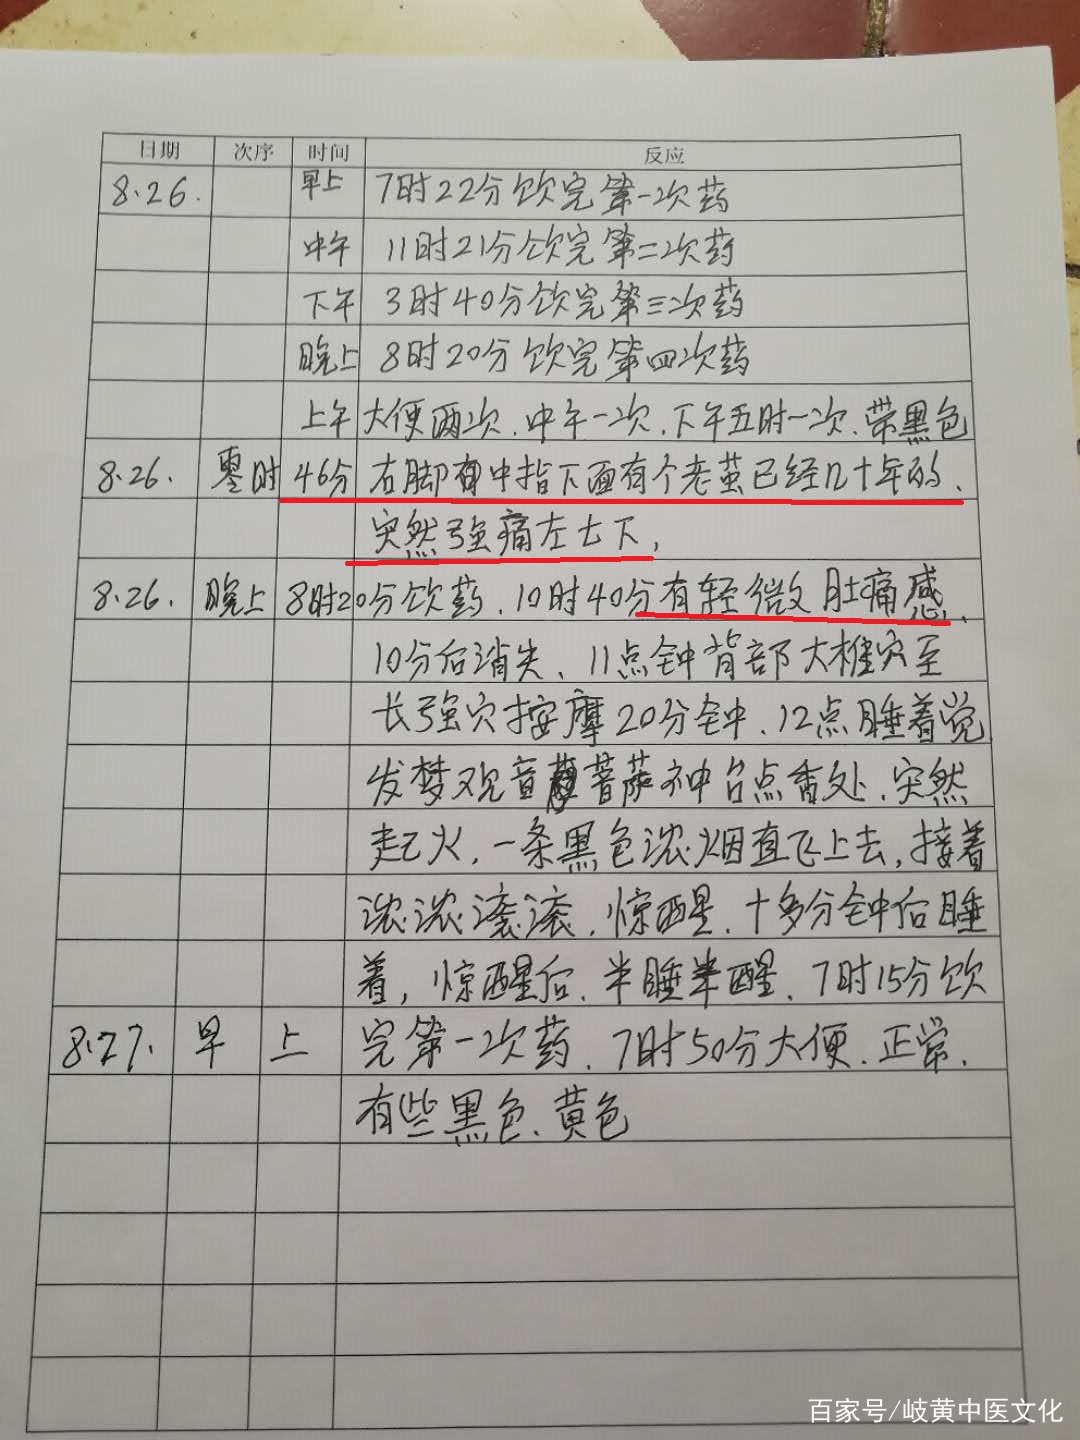 日期 次序 时间 反应
8.26. 早上 7时22分饮完第一次药
中午 11时21分饮完第二次药
下午 3时40分饮完第三次药
晚上 8时20分饮完第四次药
上午 大便两次.中午一次.下午五时一次.带黑色
8.26. 零时 46分 右脚中指下面有个老茧已经几十年的.
突然强痛左七下,
8.26. 晚上 8时20分饮药.10时40分有轻微肚痛感.
10分后消失.11点钟背部大椎穴至
长强穴按摩20分钟.12点睡着觉
发梦观音菩萨神台点香处.突然
起火,一条黑色浓烟直飞上去,接着
浓浓滚滚.惊醒.十多分钟后睡
着,惊醒后.半睡半醒.7时15分饮
8.27. 早 上 完第一次药.7时50分大便.正常.
有些黑色.黄色
百家号/岐黄中医文化